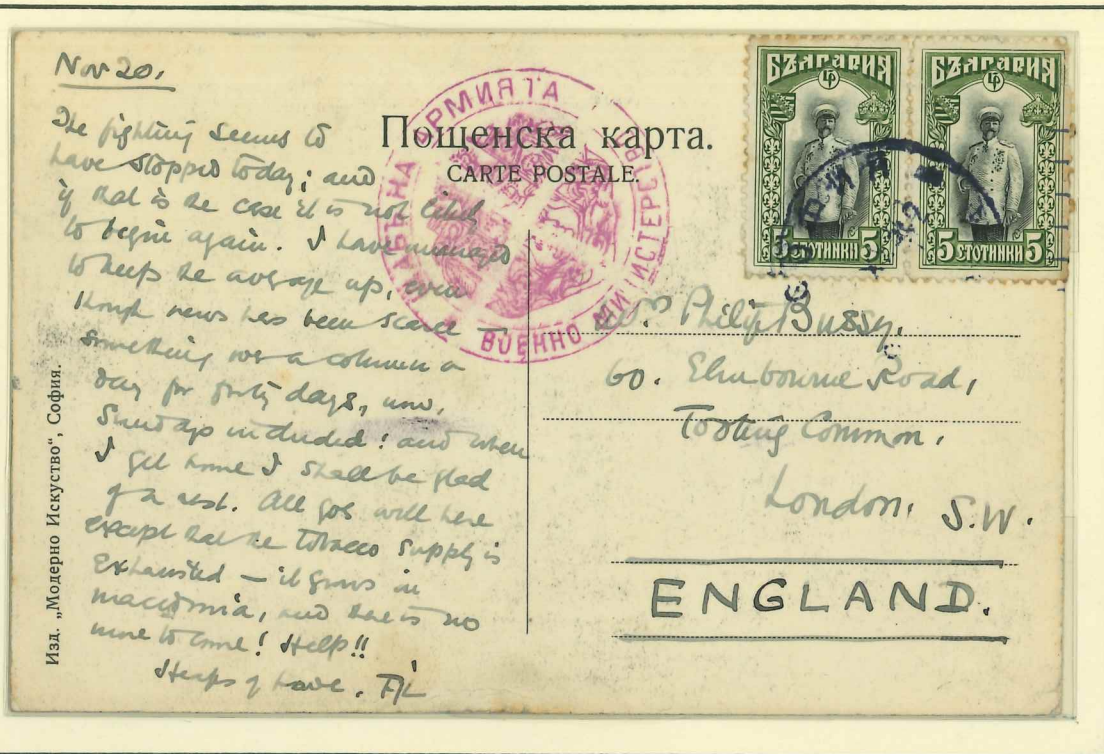 Nov 20.
The fighting seems to
have stopped today; and
if that is the case it is not likely
to begin again. I have managed
to keep the average up, even
though news has been scarce –
something over a column a
day for forty days, now,
Sundays included! and when
I get home I shall be glad
of a rest. All goes well here
except that the tobacco supply is
exhausted – it grows in
Macedonia, and there is no
more to come! Help!!
Heaps of love.
Пощенска карта.
CARTE POSTALE.
АРМИЯТА
ВОЕННО МИНИСТЕРСТВО
БЪЛГАРИЯ
5 СТОТИНКИ 5
БЪЛГАРИЯ
5 СТОТИНКИ 5
СОФИЯ
Mrs Philip Bussy.
60. Elmbourne Road,
Tooting Common.
London. S.W.
ENGLAND.
Изд. „Модерно Искуство“, София.